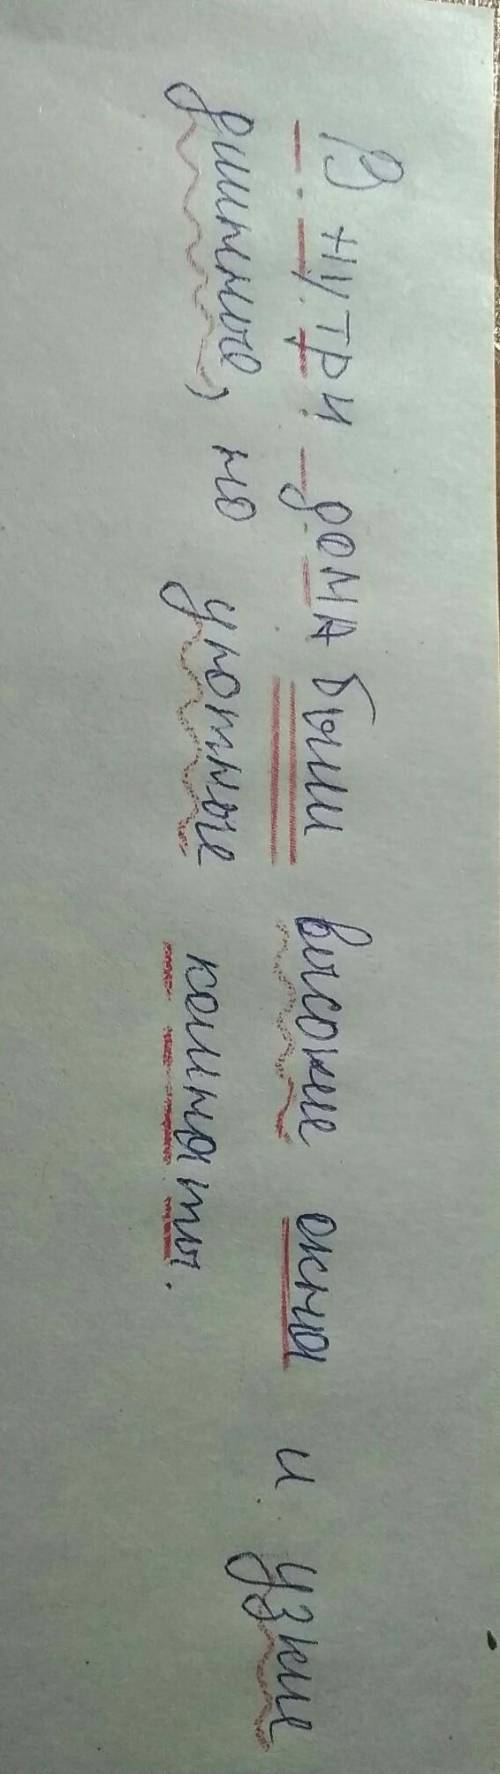 В нутри дома были высокие окна и узкие
длинные, но уютные комнаты.